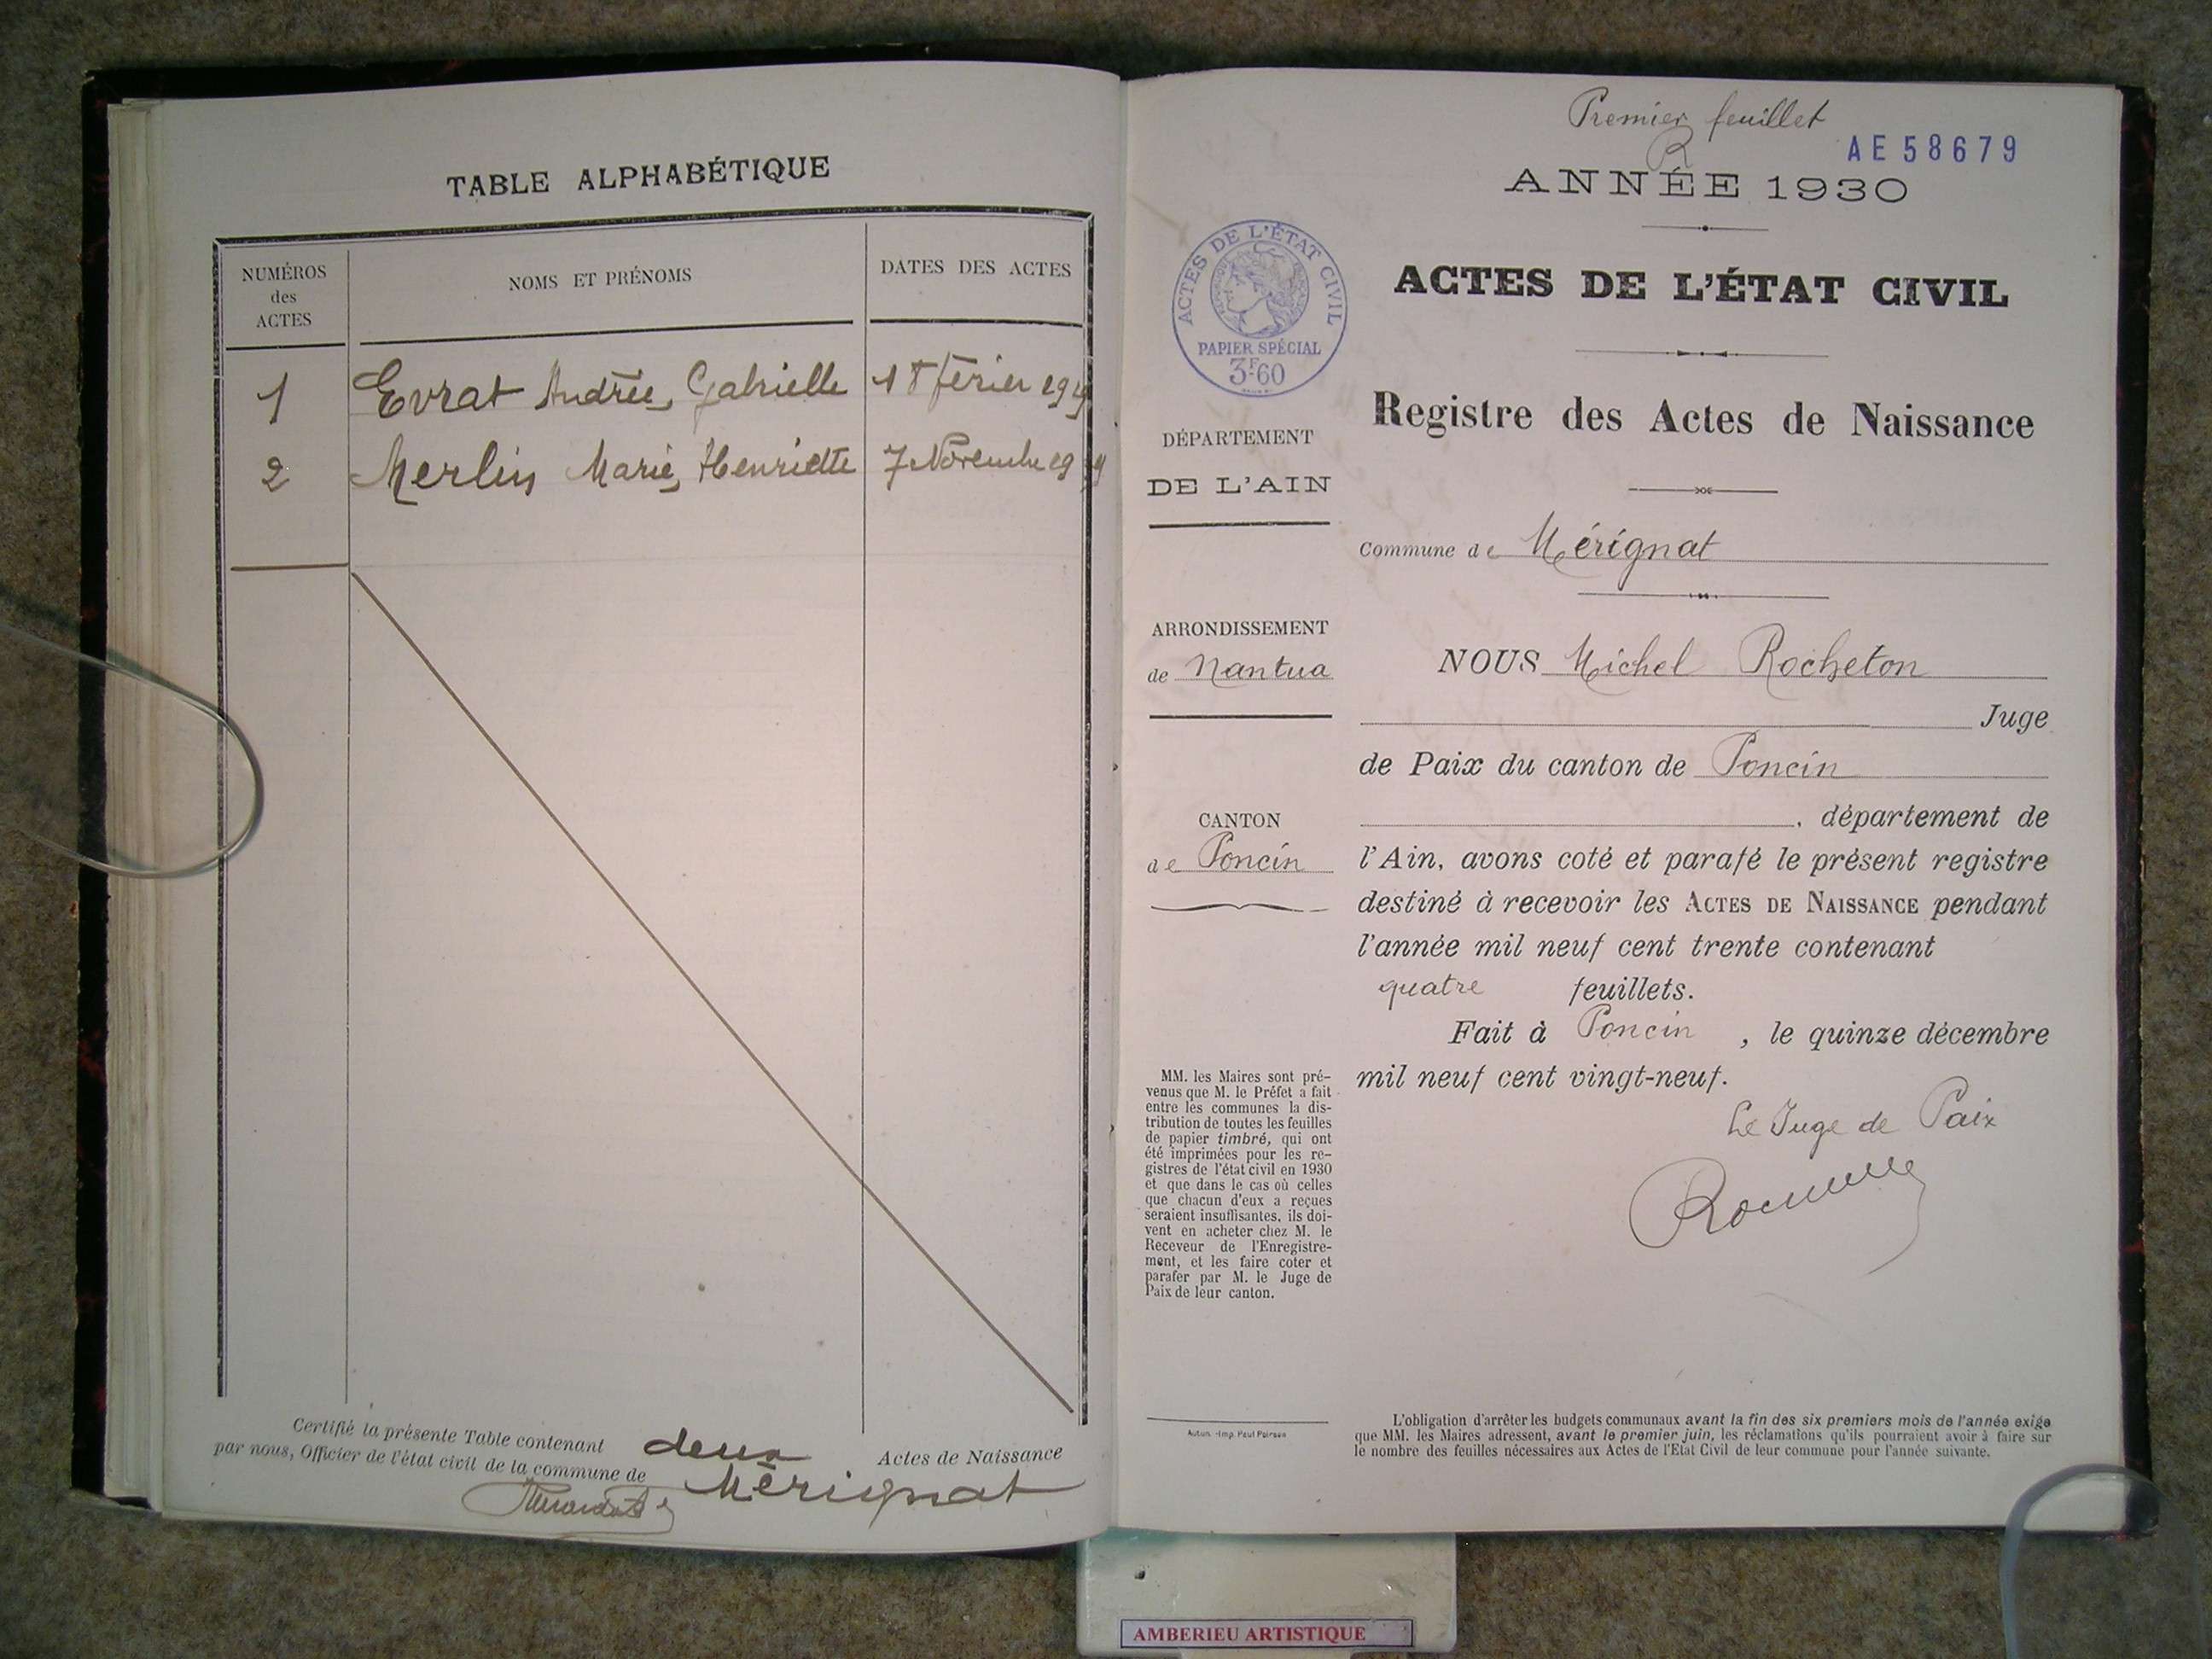 TABLE ALPHABÉTIQUE
NUMÉROS
des
ACTES
NOMS ET PRÉNOMS
DATES DES ACTES
1 Evrat Andrée, Gabrielle 18 férier
2 Merlin Marie, Henriette 7 Novembre
Certifié la présente Table contenant deux Actes de Naissance
par nous, Officier de l'état civil de la commune de Mérignat
Premier feuillet
R
AE 58679
ANNÉE 1930
ACTES DE L'ÉTAT CIVIL
PAPIER SPÉCIAL
3F60
ACTES DE L'ÉTAT CIVIL
Registre des Actes de Naissance
DÉPARTEMENT
DE L'AIN
Commune de Mérignat
ARRONDISSEMENT
de Nantua
CANTON
de Poncin
NOUS Michel Rocheton
Juge
de Paix du canton de Poncin
, département de
l'Ain, avons coté et parafé le présent registre
destiné à recevoir les ACTES DE NAISSANCE pendant
l'année mil neuf cent trente contenant
quatre feuillets.
Fait à Poncin, le quinze décembre
mil neuf cent vingt-neuf.
Le Juge de Paix
MM. les Maires sont pré-
venus que M. le Préfet a fait
entre les communes la dis-
tribution de toutes les feuilles
de papier timbré, qui ont
été imprimées pour les re-
gistres de l'état civil en 1930
et que dans le cas où celles
que chacun d'eux a reçues
seraient insuffisantes, ils doi-
vent en acheter chez M. le
Receveur de l'Enregistre-
ment, et les faire coter et
parafer par M. le Juge de
Paix de leur canton.
Autun. - Imp. Paul
L'obligation d'arrêter les budgets communaux avant la fin des six premiers mois de l'année exige
que MM. les Maires adressent, avant le premier juin, les réclamations qu'ils pourraient avoir à faire sur
le nombre des feuilles nécessaires aux Actes de l'Etat Civil de leur commune pour l'année suivante.
AMBERIEU ARTISTIQUE